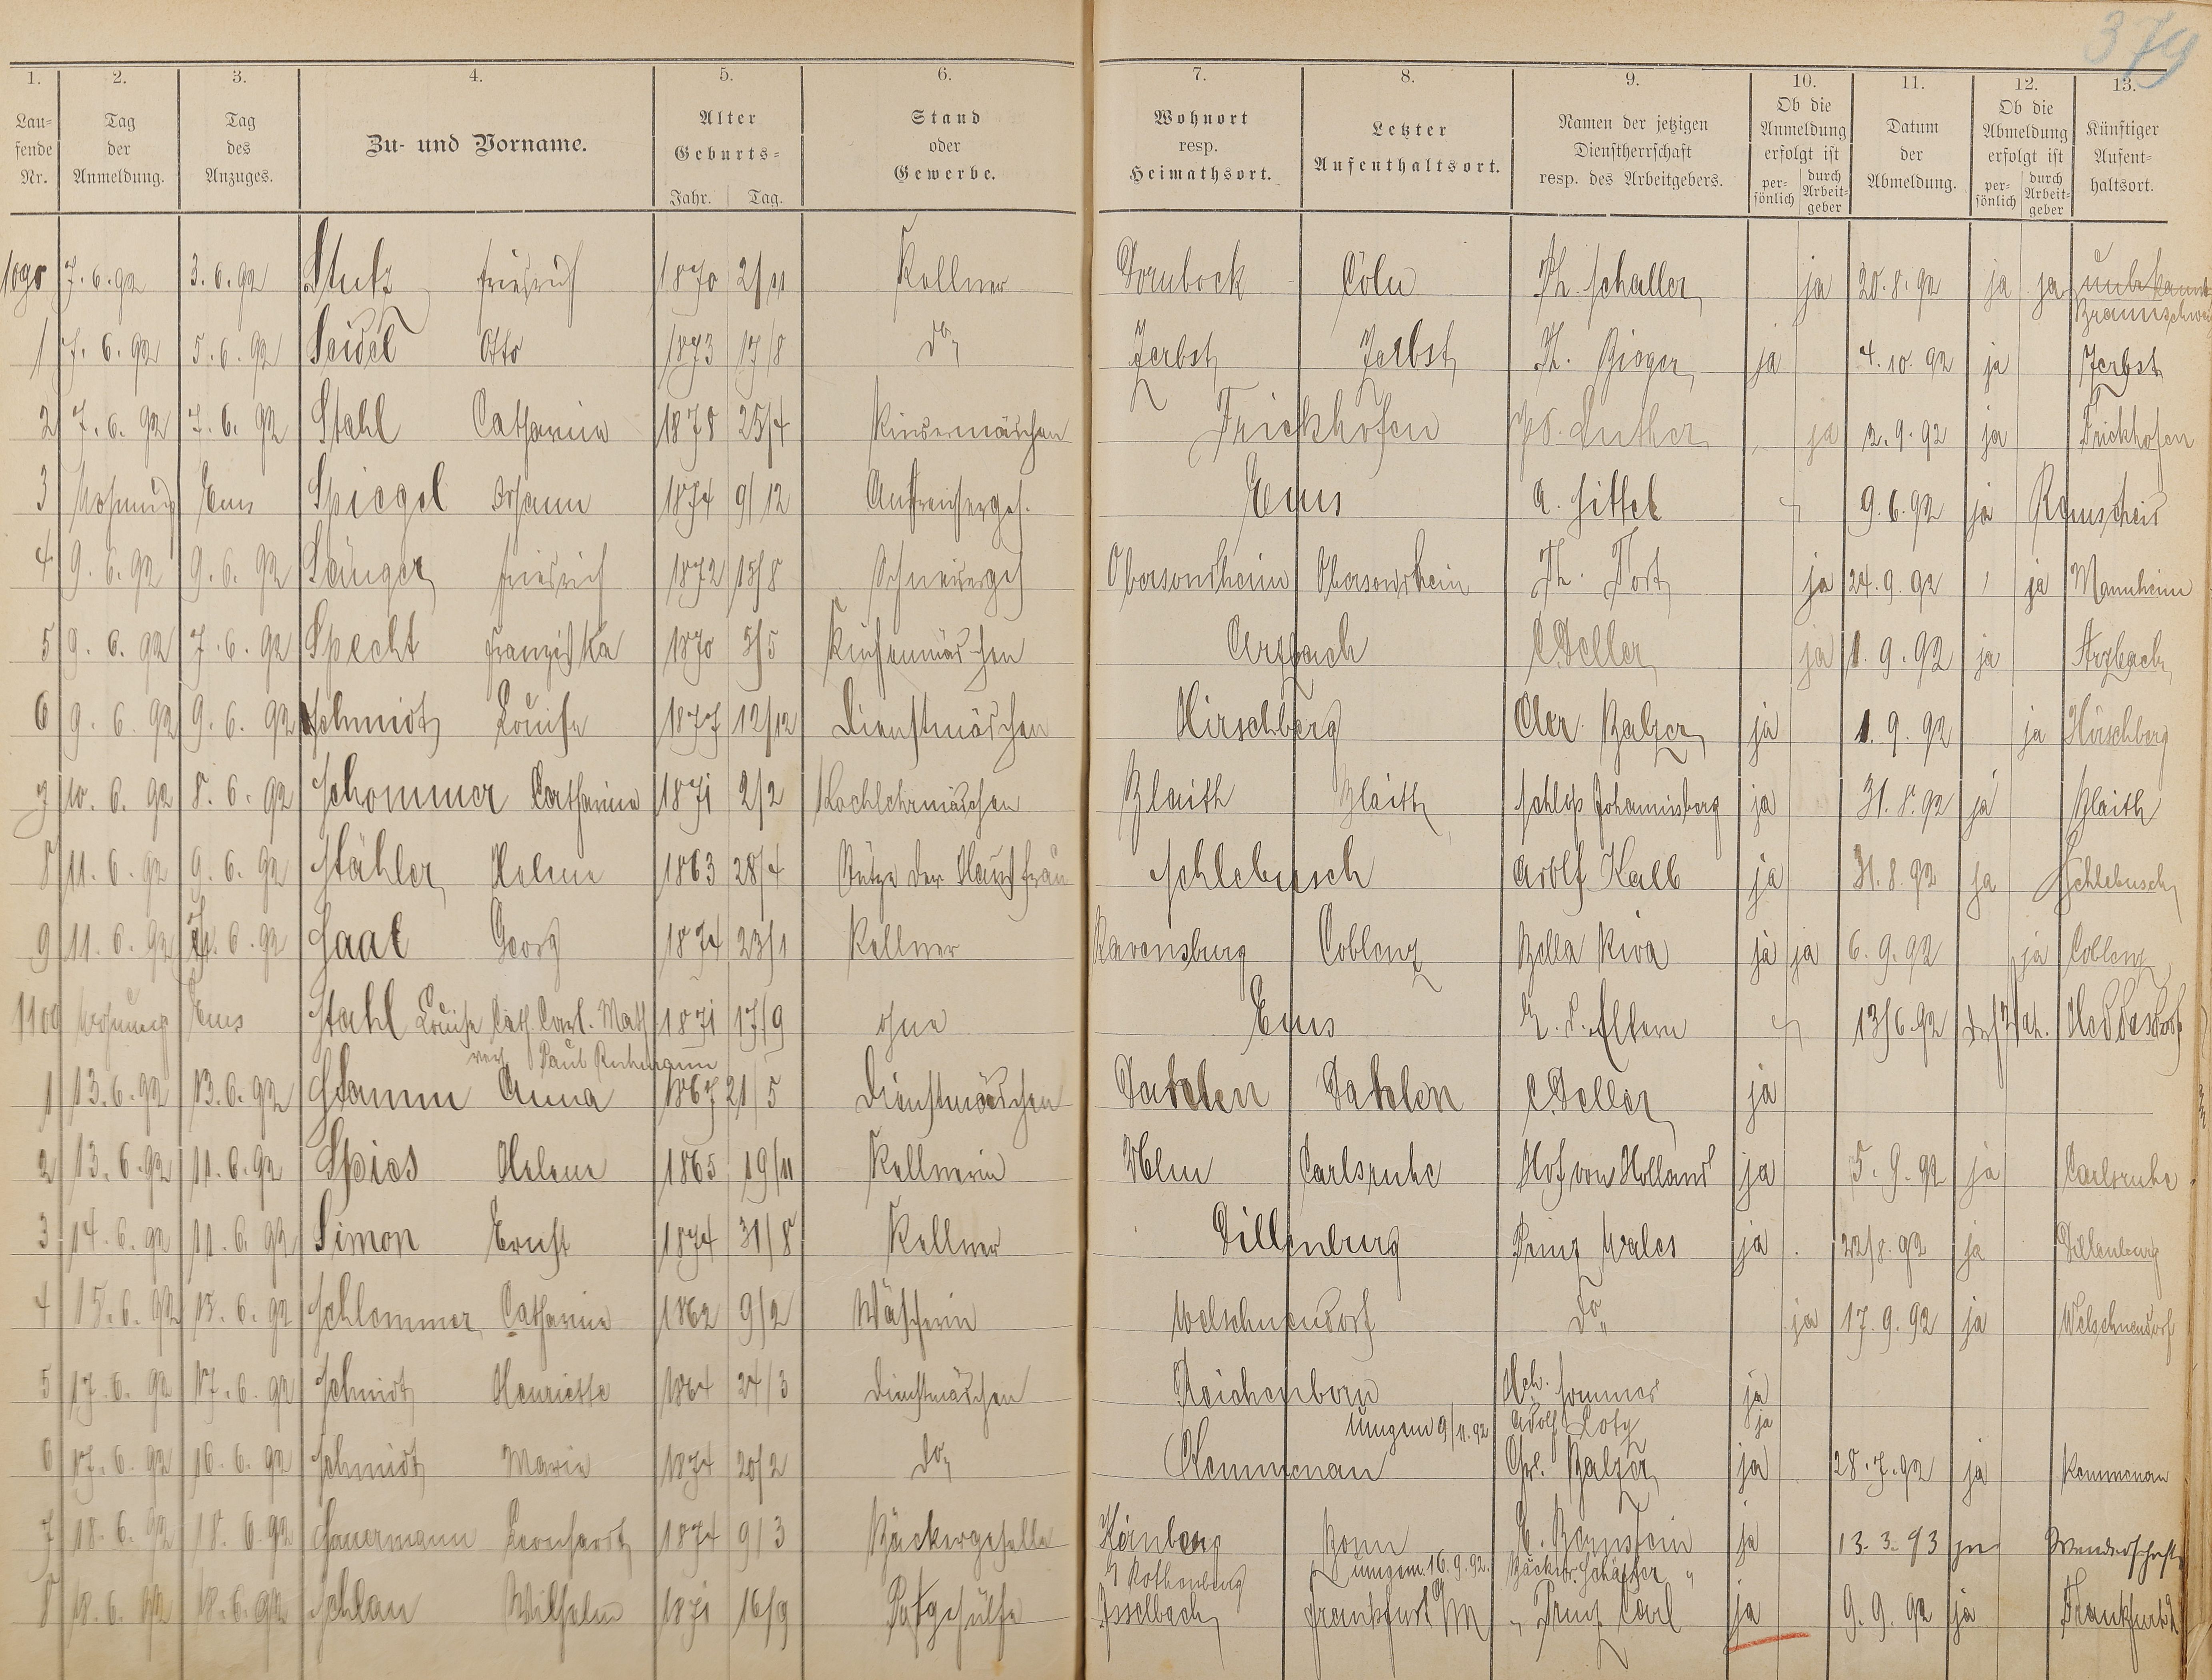 379
1. 2. 3. 4. 5. 6. 7. 8. 9. 10. 11. 12. 13.
Lau=
fende
Nr.
Tag
der
Anmeldung.
Tag
des
Anzuges.
Zu- und Vorname.
Alter
Geburts=
Jahr. Tag.
Stand
oder
Gewerbe.
Wohnort
resp.
Heimathsort.
Letzter
Aufenthaltsort.
Namen der jetzigen
Dienstherrschaft
resp. des Arbeitgebers.
Ob die
Anmeldung
erfolgt ist
per-
sönlich
durch
Arbeit=
geber
Datum
der
Abmeldung.
Ob die
Abmeldung
erfolgt ist
per-
sönlich
durch
Arbeit=
geber
Künftiger
Aufent=
haltsort.
1090 7.6.92 3.6.92 Stutz Friedrich 1870 2/11 Kellner Dornbock Cöln Ph. Schaller ja 20.8.92 ja ja unbekannt
Braunschweig
1 7.6.92 5.6.92 Seidel Otto 1873 17/8 do Zerbst Zerbst Th. Bieger ja 4.10.92 ja Zerbst
2 7.6.92 7.6.92 Stahl Catharina 1878 25/4 Kindermädchen Frickhofen Luther ja 2.9.92 ja Frickhofen
3 Wohnung Ems Spiegel Johann 1874 9/12 Anstreicherges. Ems A. Sittel 9.6.92 ja Remscheid
4 9.6.92 9.6.92 Sänger Friedrich 1872 15/8 Schneiderges Obersontheim Obersontheim Th. Port ja 24.9.92 ja Mannheim
5 9.6.92 7.6.92 Specht Franziska 1870 5/5 Küchenmädchen Arzbach C. Deller ja 1.9.92 ja Arzbach
6 9.6.92 9.6.92 Schmidt Louise 1877 12/12 Dienstmädchen Hirschberg Chr. Balzer ja 1.9.92 ja Hirschberg
7 10.6.92 8.6.92 Schommer Catharina 1871 2/2 Kochlehrmädchen Plaidt Plaidt Schloss Johannisberg ja 31.8.92 ja Plaidt
8 11.6.92 9.6.92 Stähler Helene 1863 28/4 Stütze der Hausfrau Schlebusch Adolf Kalb ja 31.8.92 ja Schlebusch
9 11.6.92 6.92 Saal Georg 1874 23/1 Kellner Ravensburg Coblenz Bella Riva ja ja 6.9.92 ja Coblenz
1100 Wohnung Ems Stahl Louise Cath. Carl. Math 1871 17/9 ohne Ems b. d. Eltern 13/6.92 Heddesdorf
Paul Ruhmann
1 13.6.92 13.6.92 Stamm Anna 1867 21/5 Dienstmädchen Datteln Datteln C. Deller ja
2 13.6.92 11.6.92 Spies Helene 1865 19/11 Kellnerin Ulm Carlsruhe Hof von Holland ja 5.9.92 ja Carlsruhe
3 14.6.92 11.6.92 Simon Ernst 1874 31/8 Kellner Dillenburg Prinz Wales ja 22/8.92 ja Dillenburg
4 15.6.92 15.6.92 Schlemmer Catharina 1862 9/2 Wäscherin Welschneudorf do ja 17.9.92 ja Welschneudorf
5 17.6.92 17.6.92 Schmidt Henriette 1864 24/3 Dienstmädchen Reichenborn Hch. Sommer ja
Umgem 9/11.92 Adolf Loty ja
6 17.6.92 16.6.92 Schmidt Maria 1874 20/2 do Kemmenau Chr. Balzer ja 28.7.92 ja Kemmenau
7 18.6.92 18.6.92 Sauermann Leonhardt 1874 9/3 Bäckergeselle Hörnberg Bonn E. Bernstein ja 13.3.93 ja Wanderschaft
Rothenburg umgem. 16.9.92. Bäcker Schäffer "
8 18.6.92 18.6.92 Schlau Wilhelm 1871 16/9 Isselbach Frankfurt a/M " Prinz Carl ja 9.9.92 ja Frankfurt